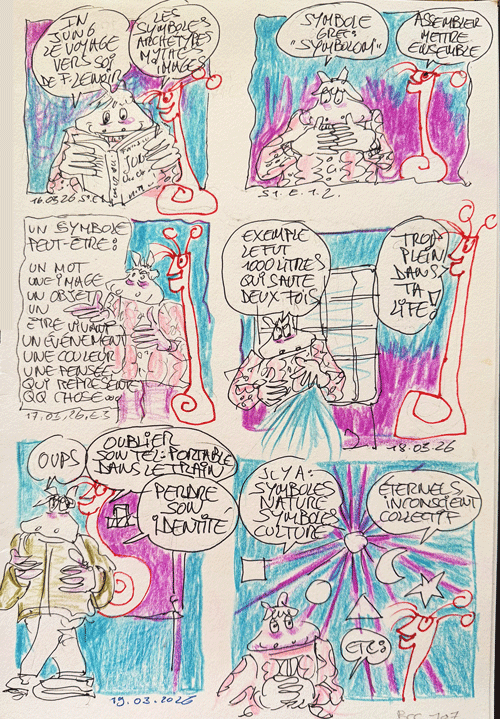 IN
JUNG
LE VOYAGE
VERS SOI
DE F. LENOIR
LES
SYMBOLES
ARCHETYPES
MYTHES
IMAGES
JUNG
SYMBOLE
GREC
"SYMBOLON"
ASSEMBLER
METTRE
ENSEMBLE
UN SYMBOLE
PEUT-ÊTRE:
UN MOT
UNE IMAGE
UN OBJET
UN
ÊTRE VIVANT
UN ÉVÉNEMENT
UNE COULEUR
UNE PENSÉE
QUI REPRÉSENTE
QQ CHOSE...
17.03.26, E3
EXEMPLE
LE FUT
1000 LITRES
QUI SAUTE
DEUX FOIS
TROP
PLEIN
DANS
TA
LIFE!
18.03.26
OUPS
OUBLIER
SON TEL: PORTABLE
DANS LE TRAIN
PERDRE
SON
IDENTITÉ
19.03.2026
IL Y A:
SYMBOLES
NATURE
SYMBOLES
CULTURE
ÉTERNELS
INCONSCIENT
COLLECTIF
ETC: